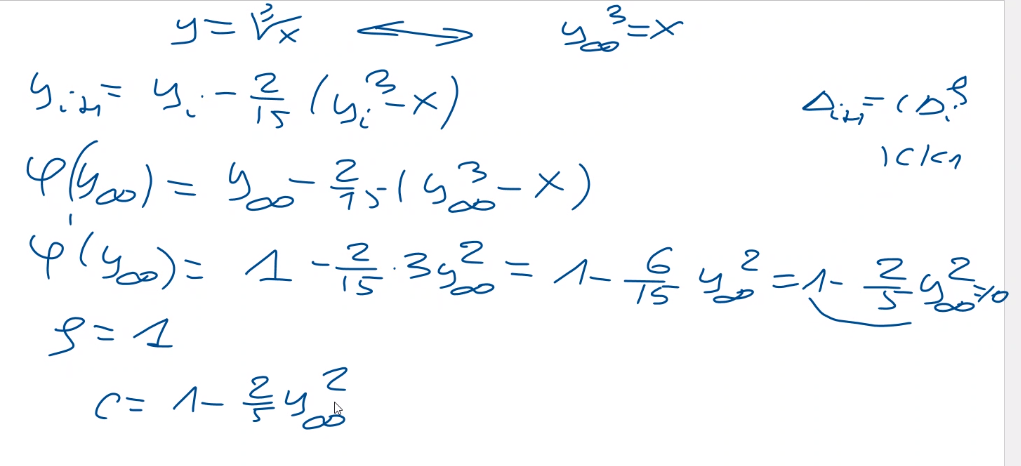 y = ∛x ⟺ y∞³ = x
yᵢ₊₁ = yᵢ - 2/15 (yᵢ³ - x)
Δᵢ₊₁ = C Δᵢ^ρ
|C| < 1
φ(y∞) = y∞ - 2/15 (y∞³ - x)
φ'(y∞) = 1 - 2/15 · 3y∞² = 1 - 6/15 y∞² = 1 - 2/5 y∞² ≠ 0
ρ = 1
C = 1 - 2/5 y∞²